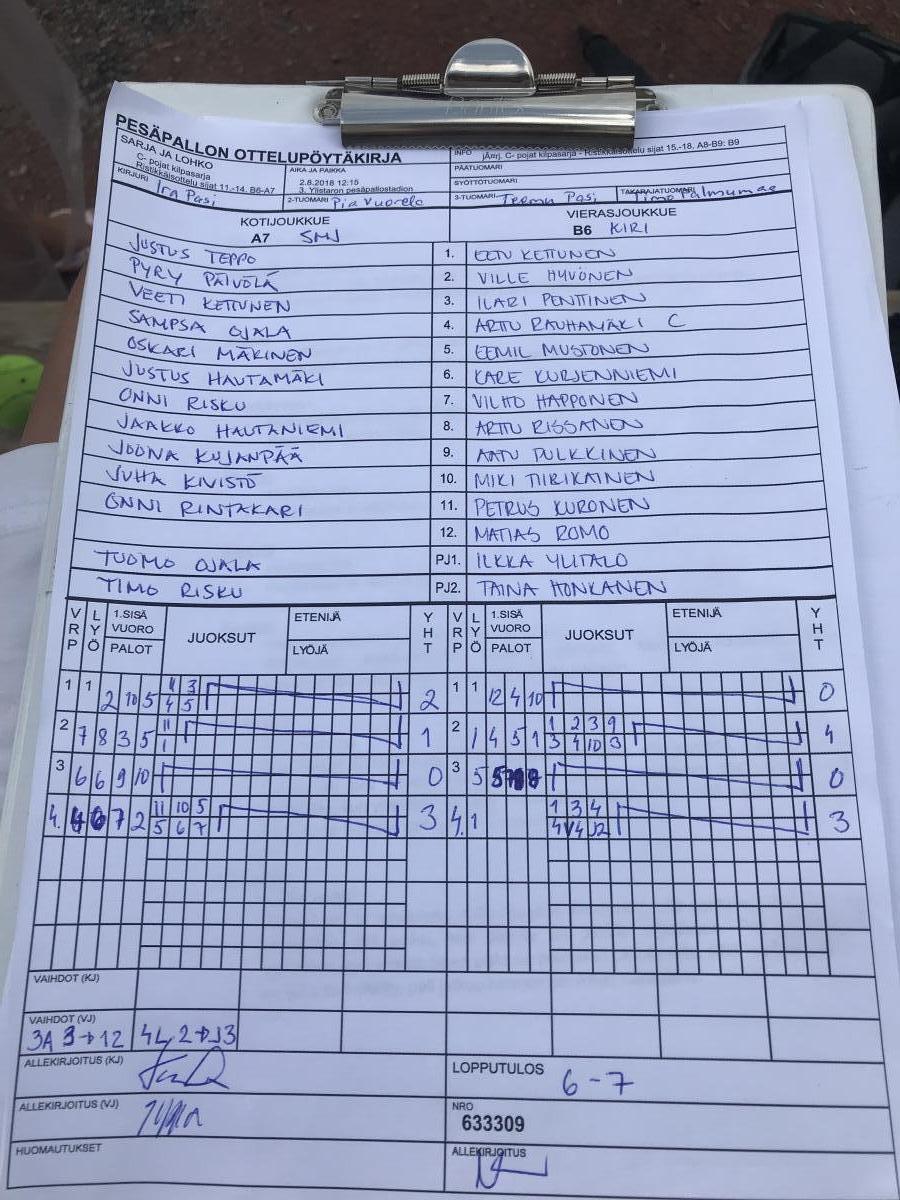 PESÄPALLON OTTELUPÖYTÄKIRJA
SARJA JA LOHKO
C- pojat kilpasarja
Ristikkäisottelu sijat 11.-14. B6-A7
AIKA JA PAIKKA
2.8.2018 12:15
3. Ylistaron pesäpallostadion
INFO Järrj. C- pojat kilpasarja - Ristikkäisottelu sijat 15.-18. A8-B9: B9
PÄÄTUOMARI
SYÖTTÖTUOMARI
KIRJURI Ira Pasi
2-TUOMARI Pia Vuorela
3-TUOMARI Teemu Pasi
TAKARAJATUOMARI Timo
KOTIJOUKKUE
A7 SMJ
VIERASJOUKKUE
B6 KIRI
JUSTUS TEPPO 1. EETU KETTUNEN
PYRY PÄIVÖLÄ 2. VILLE HYVÖNEN
VEETI KETTUNEN 3. ILARI PENTTINEN
SAMPSA OJALA 4. ARTTU RAUHAMÄKI C
OSKARI MÄKINEN 5. EEMIL MUSTONEN
JUSTUS HAUTAMÄKI 6. KARE KURJENNIEMI
ONNI RISKU 7. VILHO HAPPONEN
JAAKKO HAUTANIEMI 8. ARTTU RISSANEN
JOONA KUJANPÄÄ 9. AATU PULKKINEN
JUHA KIVISTÖ 10. MIKI TIIRIKAINEN
ONNI RINTAKARI 11. PETRUS KURONEN
12. MATIAS ROMO
TUOMO OJALA PJ1. ILKKA YLITALO
TIMO RISKU PJ2. TAINA HONKANEN
VRP LYÖ 1.SISÄ VUORO PALOT JUOKSUT ETENIJÄ LYÖJÄ YHT VRP LYÖ 1.SISÄ VUORO PALOT JUOKSUT ETENIJÄ LYÖJÄ YHT
1 1 2 10 5 11 3 2 1 1 12 4 10 0
4 5
2 7 8 3 5 11 1 2 1 4 5 1 1 2 3 9 4
1 3 4 10 3
3 6 6 9 10 0 3 5 0
4. 7 2 11 10 5 3 4. 1 1 3 4 3
5 6 7 4 J2
VAIHDOT (KJ)
VAIHDOT (VJ)
3A 3→12 4L 2→J3
ALLEKIRJOITUS (KJ)
LOPPUTULOS 6-7
ALLEKIRJOITUS (VJ)
NRO
633309
HUOMAUTUKSET
ALLEKIRJOITUS